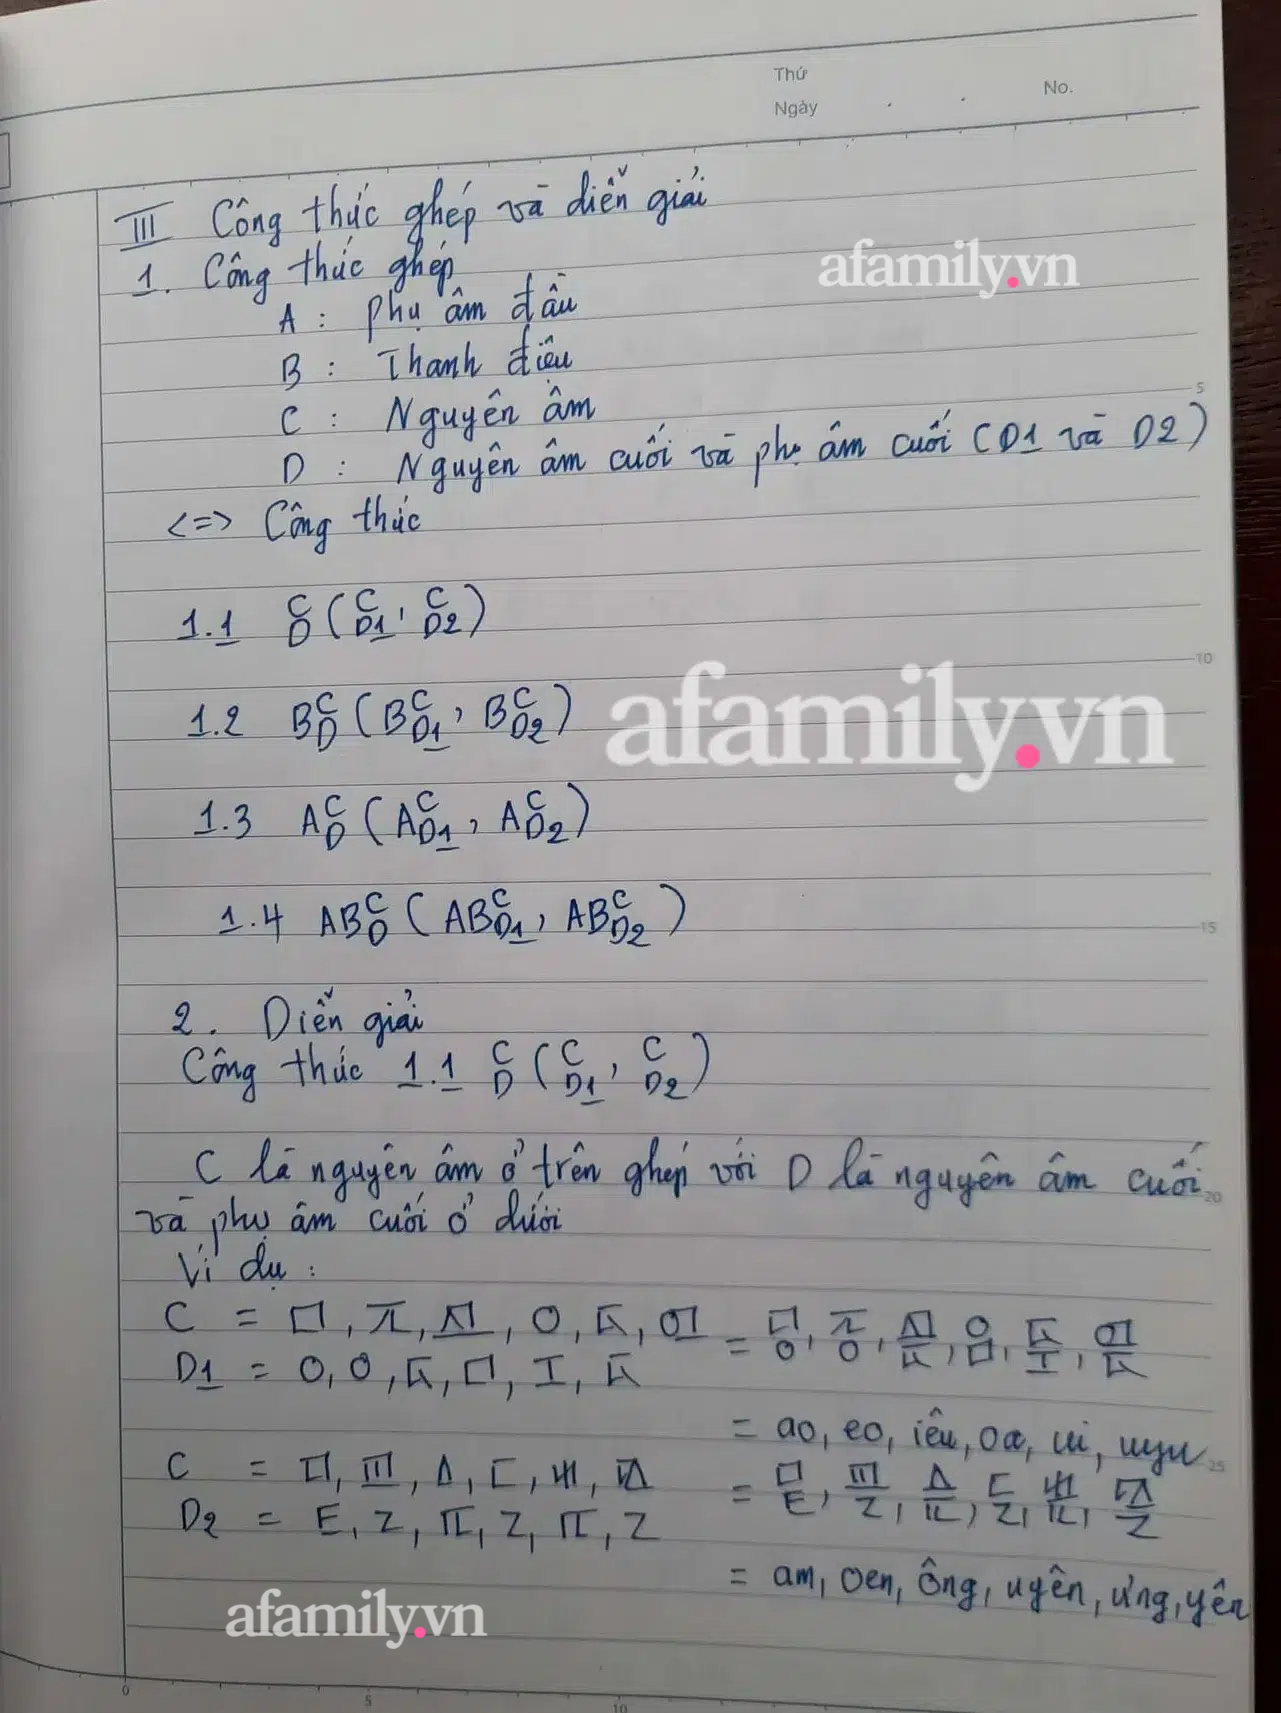 Thứ
Ngày . . No.
III Công thức ghép và diễn giải
1. Công thức ghép
afamily.vn
A : Phụ âm đầu
B : Thanh điệu
C : Nguyên âm
D : Nguyên âm cuối và phụ âm cuối (D1 và D2)
5
<=> Công thức
1.1 C D (C D1, C D2)
10
1.2 B C D (B C D1, B C D2)
afamily.vn
1.3 A C D (A C D1, A C D2)
1.4 AB C D (AB C D1, AB C D2)
15
2. Diễn giải
Công thức 1.1 C D (C D1, C D2)
C là nguyên âm ở trên ghép với D là nguyên âm cuối
20
và phụ âm cuối ở dưới
Ví dụ :
C =
D1 =
= ao, eo, iêu, oa, ui, uyu
25
C =
D2 =
= am, oen, ông, uyên, ưng, yên
afamily.vn
0 5 10